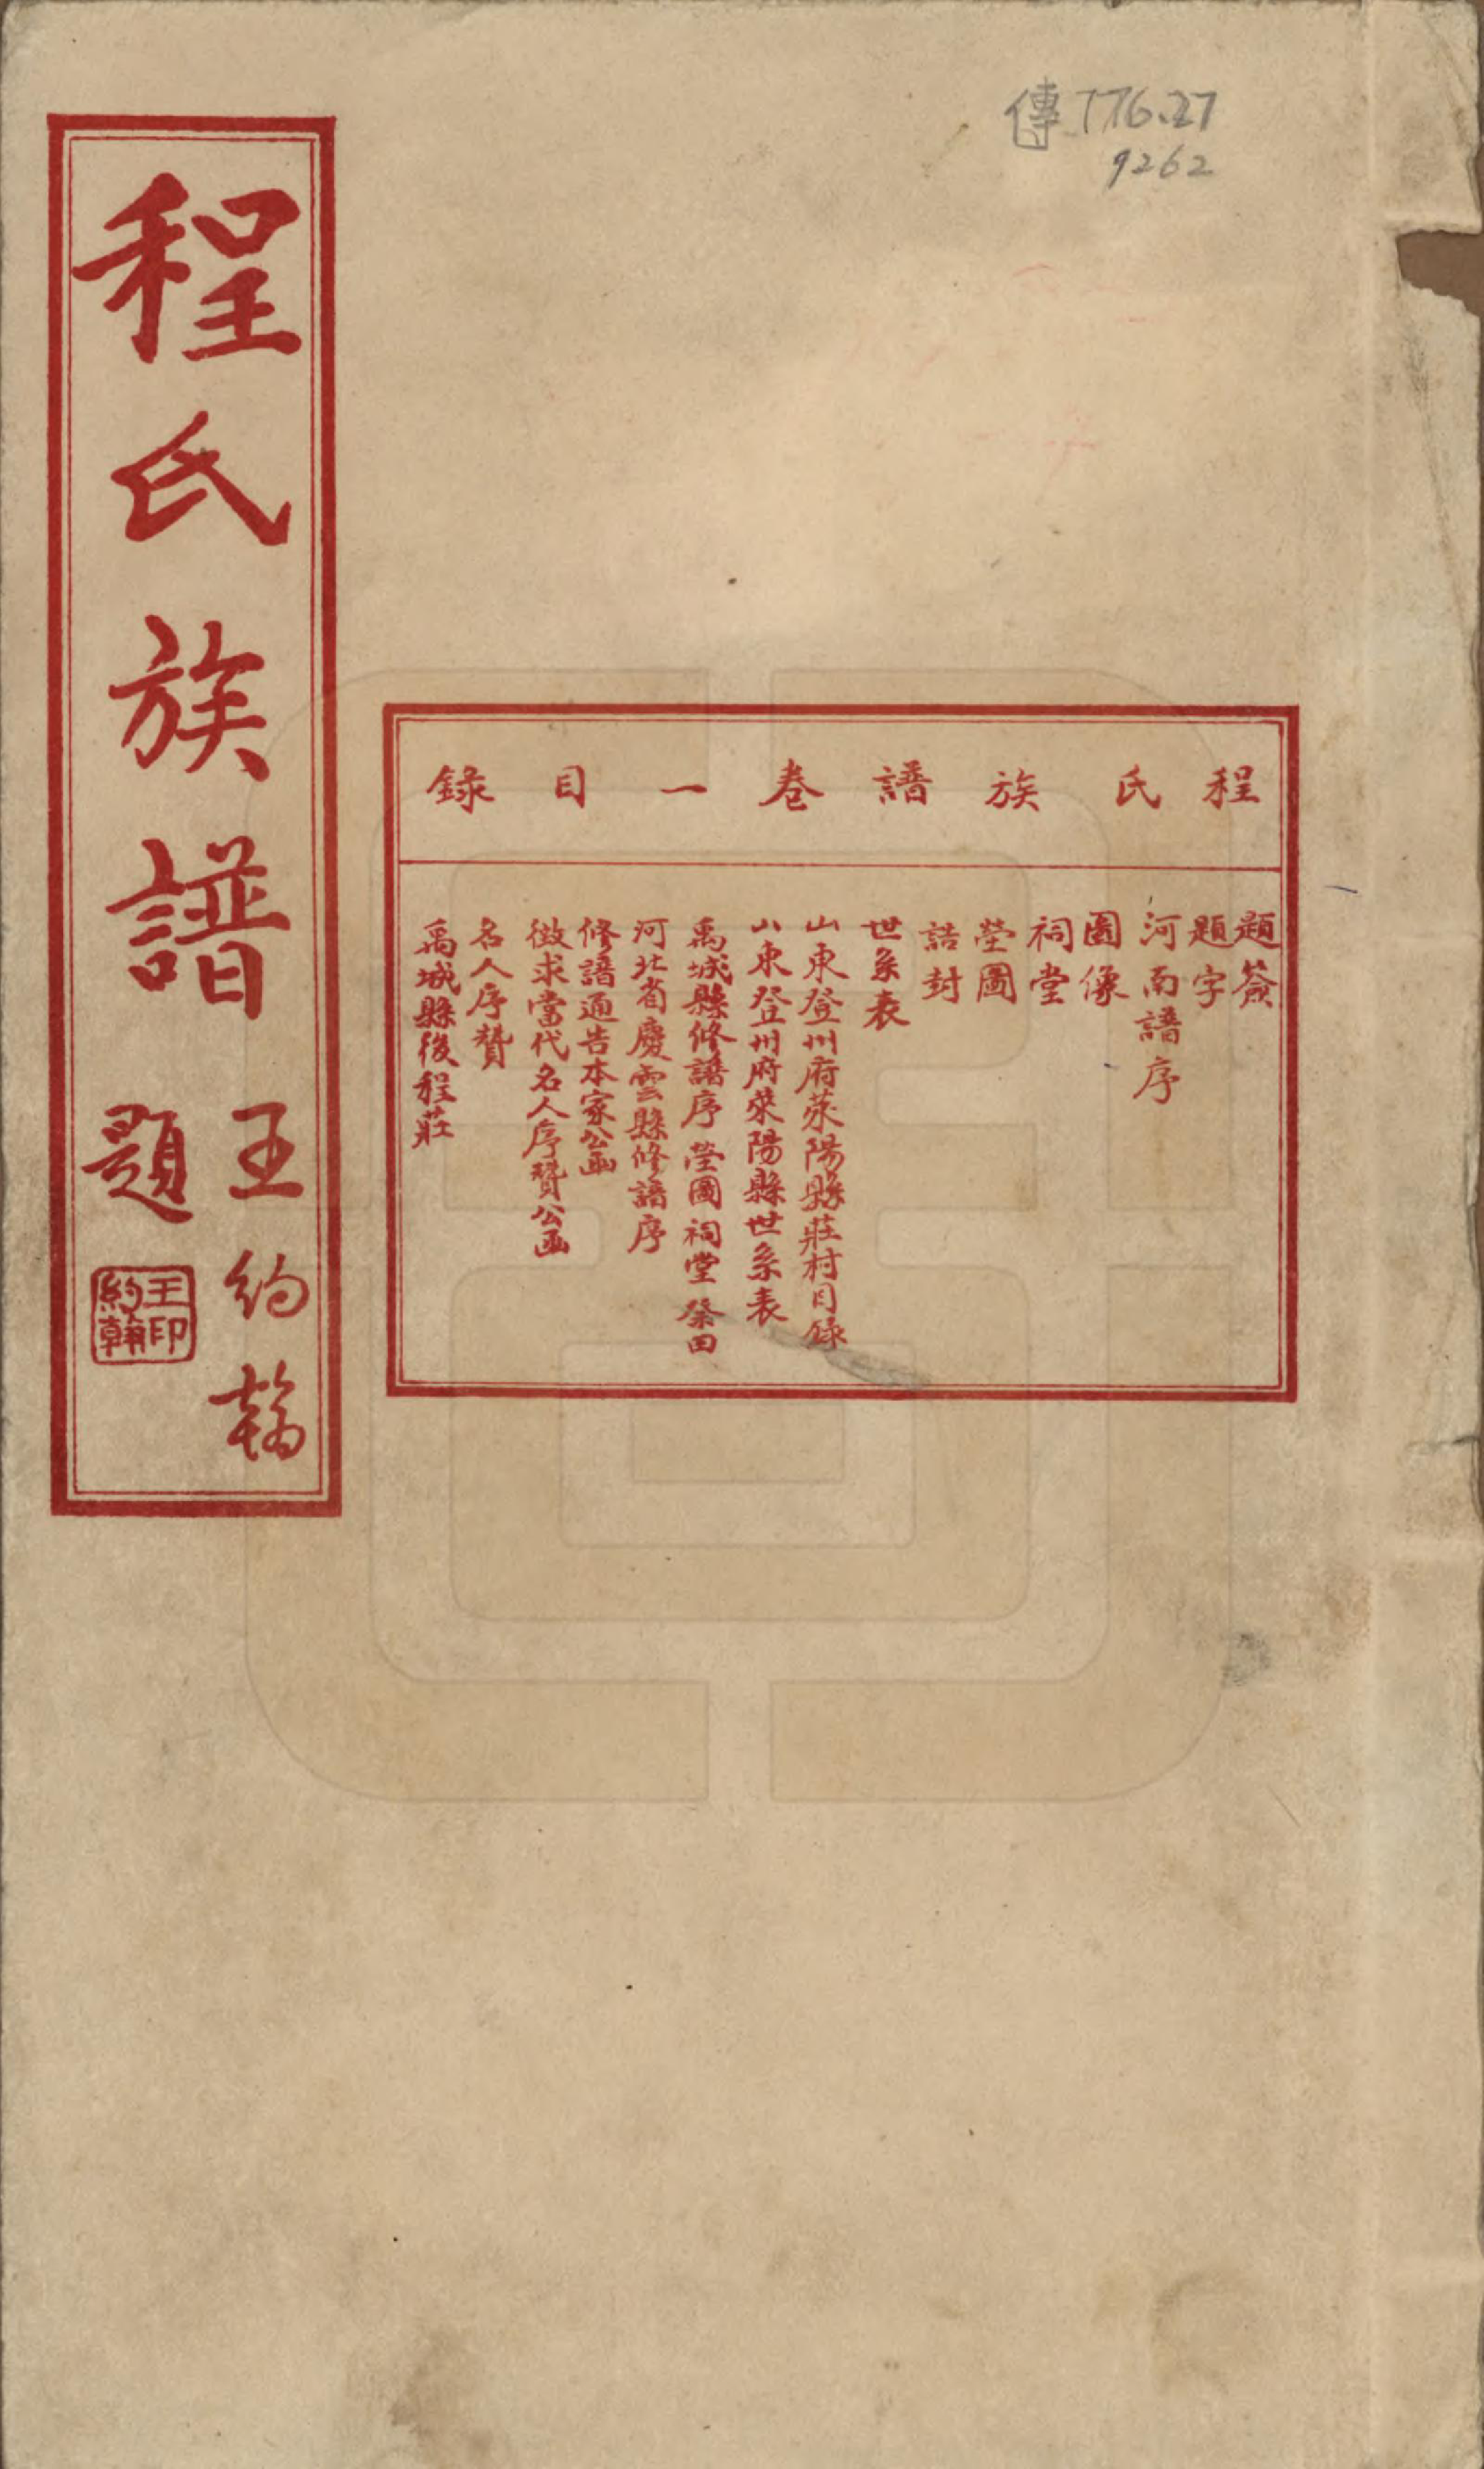 傳 776.27
9262
程氏族譜卷一目錄
題簽
題字
河南譜序
圖像
祠堂
塋圖
誥封
世系表
山東登州府萊陽縣莊村目錄
山東登州府萊陽縣世系表
禹城縣修譜序 塋圖 祠堂 祭田
河北省慶雲縣修譜序
修譜通告本家公函
徵求當代名人序贊公函
名人序贊
禹城縣後程莊
程氏族譜
王約翰
題
王印約翰